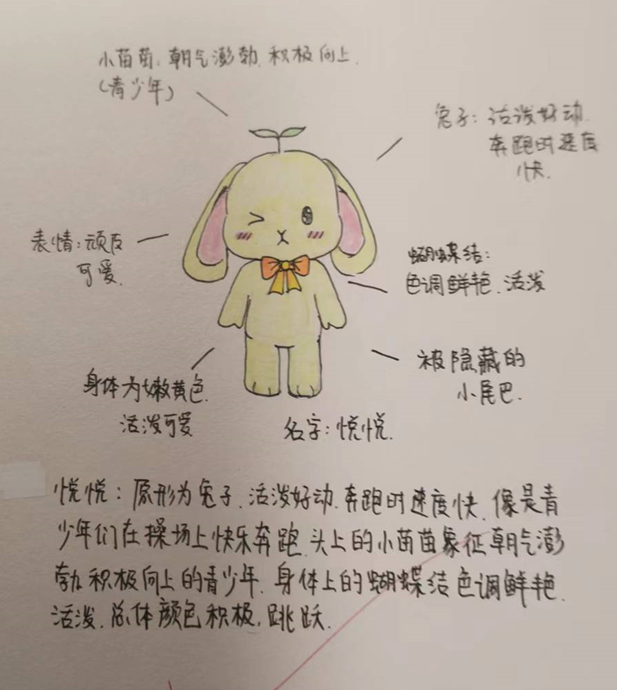 小苗苗:朝气澎勃.积极向上.
(青少年)
兔子:活泼好动.
奔跑时速度
快.
表情:顽皮
可爱.
蝴蝶结:
色调鲜艳.活泼
身体为嫩黄色.
活泼可爱
被隐藏的
小尾巴.
名字:悦悦.
悦悦:原形为兔子.活泼好动.奔跑时速度快.像是青
少年们在操场上快乐奔跑.头上的小苗苗象征朝气澎
勃积极向上的青少年.身体上的蝴蝶结色调鲜艳.
活泼.总体颜色积极.跳跃.